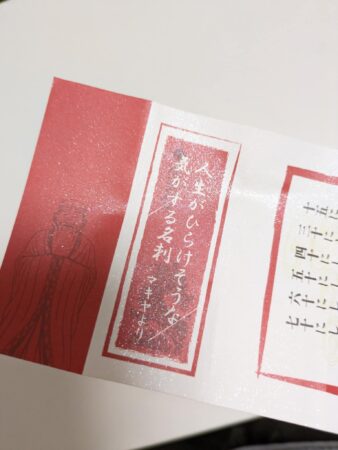 十五に
三十に
四十に
五十に
六十に
七十に
人生がひらけそうな
気がする名刺
マキヤより